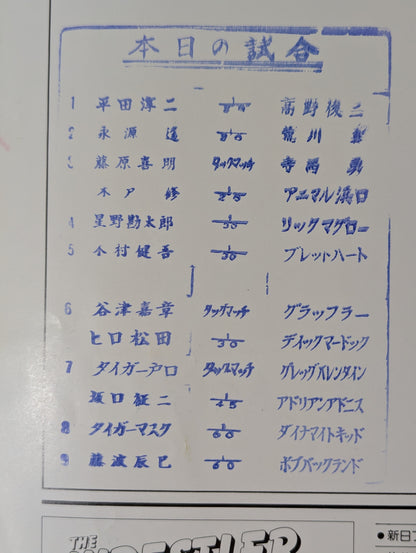 本日の試合
1 平田淳二 高野俊二
2 永源遥 荒川真
3 藤原喜明 タッグマッチ 寺西勇
木戸修 アニマル浜口
4 星野勘太郎 1/30 リックマグロー
5 木村健吾 1/30 ブレットハート
6 谷津嘉章 タッグマッチ グラップラー
ヒロ松田 1/30 ディックマードック
7 タイガー戸口 タッグマッチ グレッグバレンタイン
坂口征二 1/45 アドリアンアドニス
8 タイガーマスク 1/60 ダイナマイトキッド
9 藤波辰巳 1/60 ボブバックランド
THE
WRESTLER
●新日